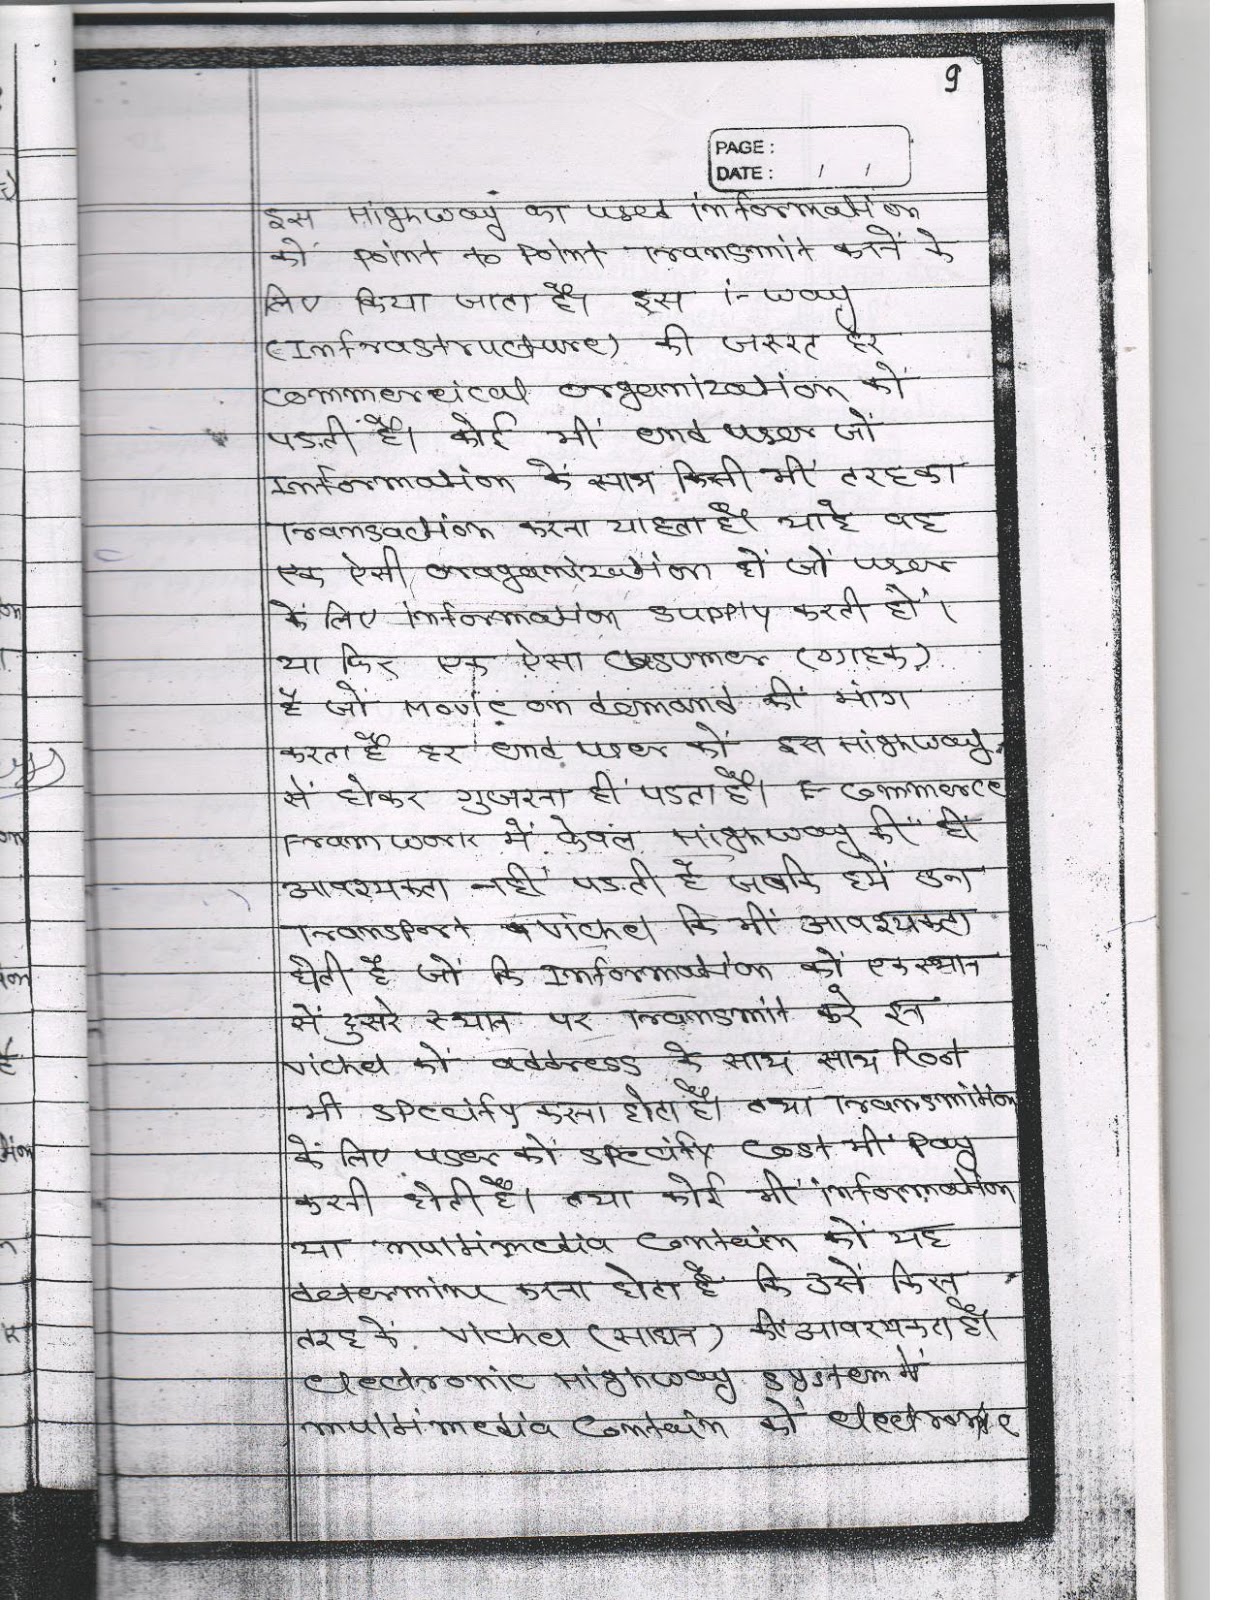 9
PAGE :
DATE : / /
इस Highway का used information
को point to point Transmit करने के
लिए किया जाता है। इस i-way
(Infrastructure) की जरूरत हर
Commercical organization को
पडती है। कोई भी end user जो
Information के साथ किसी भी तरह का
Transaction करना चाहता है। चाहे वह
एक ऐसी oragamization हो जो user
के लिए information supply करती हो।
या फिर एक ऐसा Cosumer (ग्राहक)
है जो Movie on demand की मांग
करता है हर end user को इस Highway
से होकर गुजरना ही पडता है। E-Commerce
Fram work में केवल Highway की ही
आवश्यकता नही पडती है जबकि हमें उन
Transport Vichel कि भी आवश्यकता
होती है जो कि Information को एक स्थान
से दुसरे स्थान पर Transmit करे इन
Vichel को address के साथ साथ Root
भी specify करना होता है। तथा Transmition
के लिए user को specify Cost भी Pay
करनी होती है। तथा कोई भी information
या multimedia Contain को यह
determine करना होता है कि उसे किस
तरह के Vichel (साधन) की आवश्यकता है।
electronic Highway system में
multimedia Contain को electronic